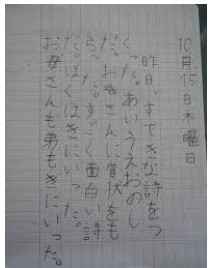 10月15日木曜日
昨日、すてきな詩をつ
くった。あいうえおのし
だ。お母さんに賞状をも
らった。すごく面白い詩
だ。ぼくはきにいった。
お母さんも弟もきにいった。